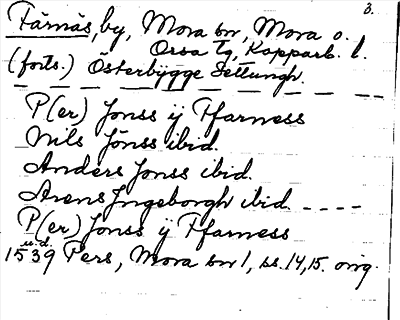 3.
Färnäs, by, Mora sn, Mora o.
Orsa tg, Kopparb. l.
(forts.) Österbygge Settungh.
P(er) Jonss ij Ffarness
Nils Jönss ibid.
Anders Jonss ibid.
Arens Ingeborgh ibid. ----
P(er) Jonss ij Ffarness
u.d.
1539 Pers, Mora sn 1, ss. 14, 15. orig.